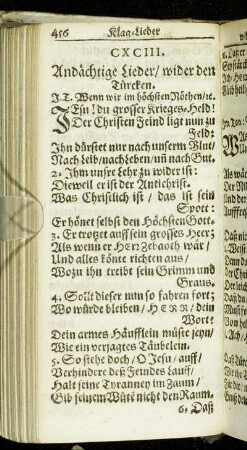 456 Klag-Lieder
CXCIII.
Andächtige Lieder/ wider den
Türcken.
J.T. Wenn wir im höchsten Nöthen/ꝛc.
JEsu! du grosser Krieges-Held!
Der Christen Feind ligt nun zu
Feld:
Ihn dürstet nur nach unserm Blut/
Nach Leib/ nach Leben/ uñ nach Gut.
2. Ihm unsre Lehr zu wider ist:
Dieweil er ist der Antichrist.
Was Christlich ist/ das ist sein
Spott:
Er hönet selbst den Höchsten Gott.
3. Er trotzet auff sein grosses Heer;
Als wenn er HErr Zebaoth wär/
Und alles könte richten aus/
Wozu ihn treibt sein Grimm und
Graus.
4. Sollt dieser nun so fahren fort;
Wo würde bleiben/ HERR/ dein
Wort?
Dein armes Häufflein müste seyn/
Wie ein verjagtes Täubelein.
5. So stehe doch/ O Jesu/ auff/
Verhindere deß Feindes Lauff/
Halt seine Tyranney im Zaum/
Gib seinem Wüte nicht den Raum.
6. Daß